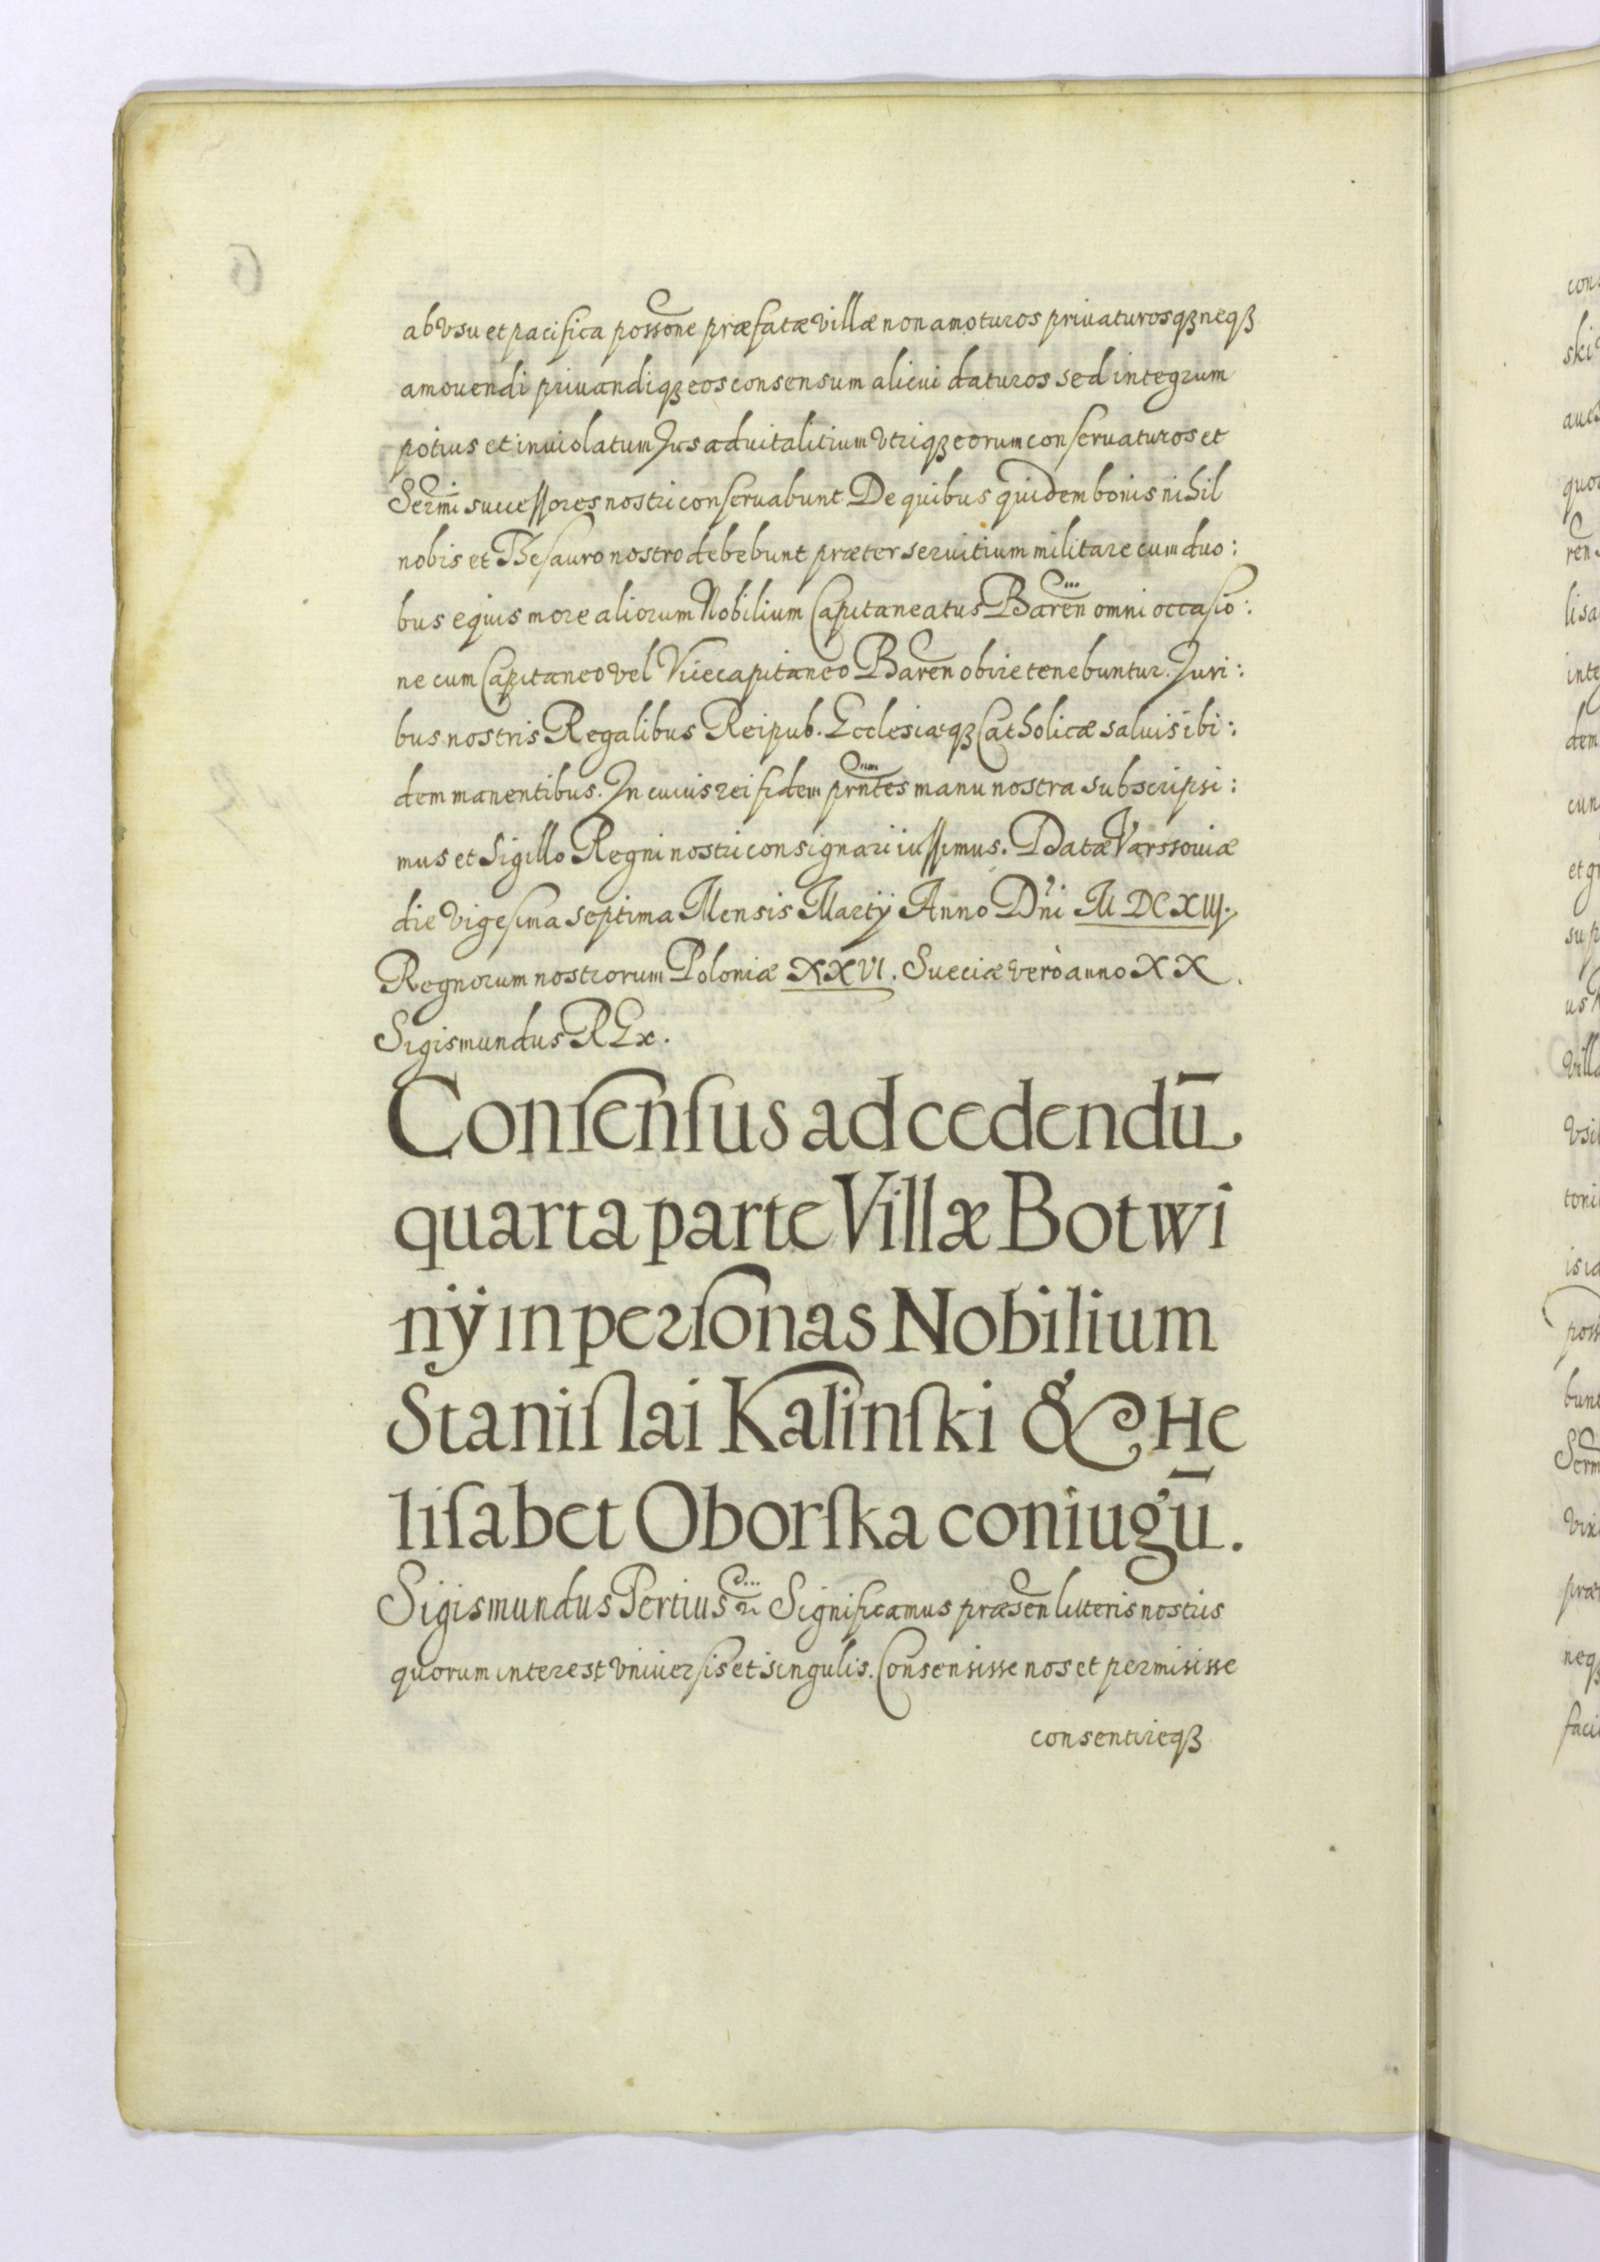 ab vsu et pacifica possone præfatæ villæ non amoturos priuaturosqꝫ neqꝫ
amouendi priuandiqꝫ eos consensum alicui daturos sed integrum
potius et inuiolatum Jus aduitalitium vtriqꝫ eorum conseruaturos et
Sermi successores nostri conseruabunt De quibus quidem bonis nihil
nobis et Thesauro nostro debebunt præter seruitium militare cum duo:
bus equis more aliorum Nobilium Capitaneatus Baren omni occasio:
ne cum Capitaneo vel Vicecapitaneo Baren obire tenebuntur. Juri:
bus nostris Regalibus Reipub. Ecclesiæqꝫ Catholicæ saluis ibi:
dem manentibus. In cuius rei fidem prntes manu nostra subscripsi:
mus et Sigillo Regni nostri consignari iussimus. Datæ Varssouiæ
die vigesima septima Mensis Martÿ Anno Dni M DC XIIJ.
Regnorum nostrorum Poloniæ XXVI. Sueciæ verò anno XX.
Sigismundus REx.
Conſenſus ad cedendū
quarta parte Villæ Botwi
nÿ in perſonas Nobilium
Staniſlai Kalinſki & He
liſabet Oborſka coniugū.
Sigismundus Tertius Significamus præsen litteris nostris
quorum interest vniuersis et singulis. Consensisse nos et permisisse
consentireqꝫ